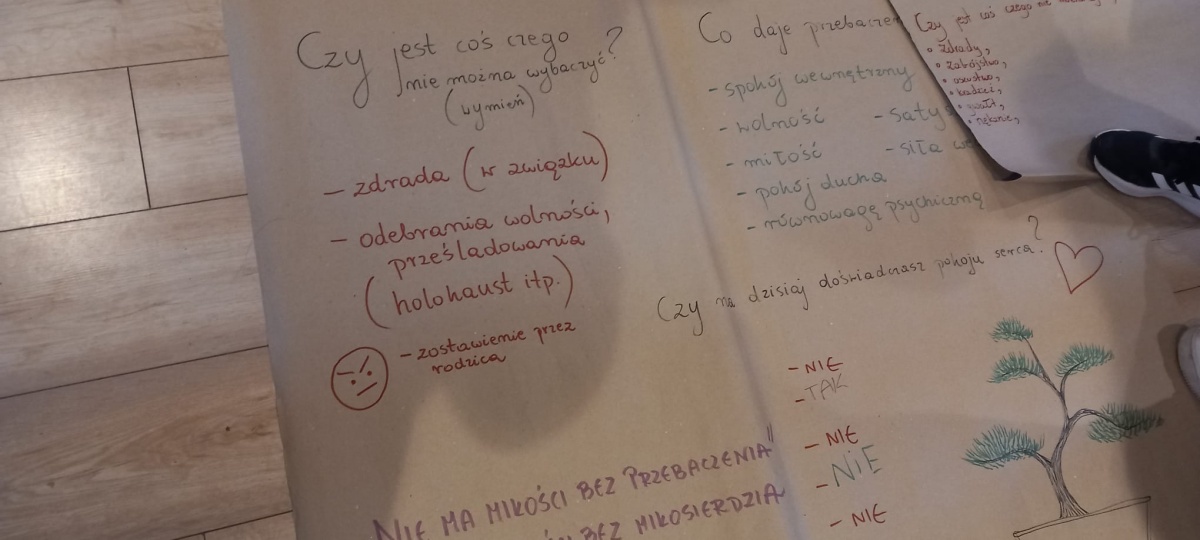 Czy jest coś czego
nie można wybaczyć?
(wymień)
- zdrada (w związku)
- odebrania wolności,
prześladowania
(holohaust itp.)
- zostawienie przez
rodzica
NIE MA MIŁOŚCI BEZ PRZEBACZENIA"
BEZ MIŁOSIERDZIA
Co daje przebaczen
- spokój wewnętrzny
- wolność - saty
- miłość - siła we
- pokój ducha
- równowagę psychiczną
Czy na dzisiaj doświadczasz pokoju serca?
- NIE
- TAK
- NIE
- NIE
- NIE
Czy jest coś czego nie
• zdrady,
• zabójstwo,
• oszustwo,
• kradzież,
• gwałt,
• nękanie,